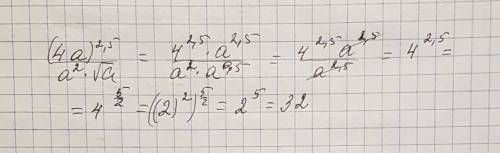 (4a)^2,5 / a² · √a = 4^2,5 · a^2,5 / a² · a^0,5 = 4^2,5 a^2,5 / a^2,5 = 4^2,5 =
= 4^5/2 = ((2)²)^5/2 = 2⁵ = 32